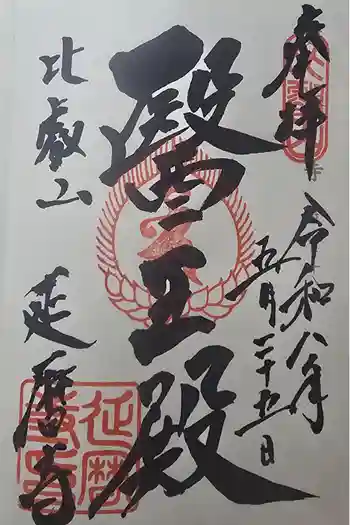 奉拝
令和八年
五月二十五日
醫王殿
比叡山
延暦寺